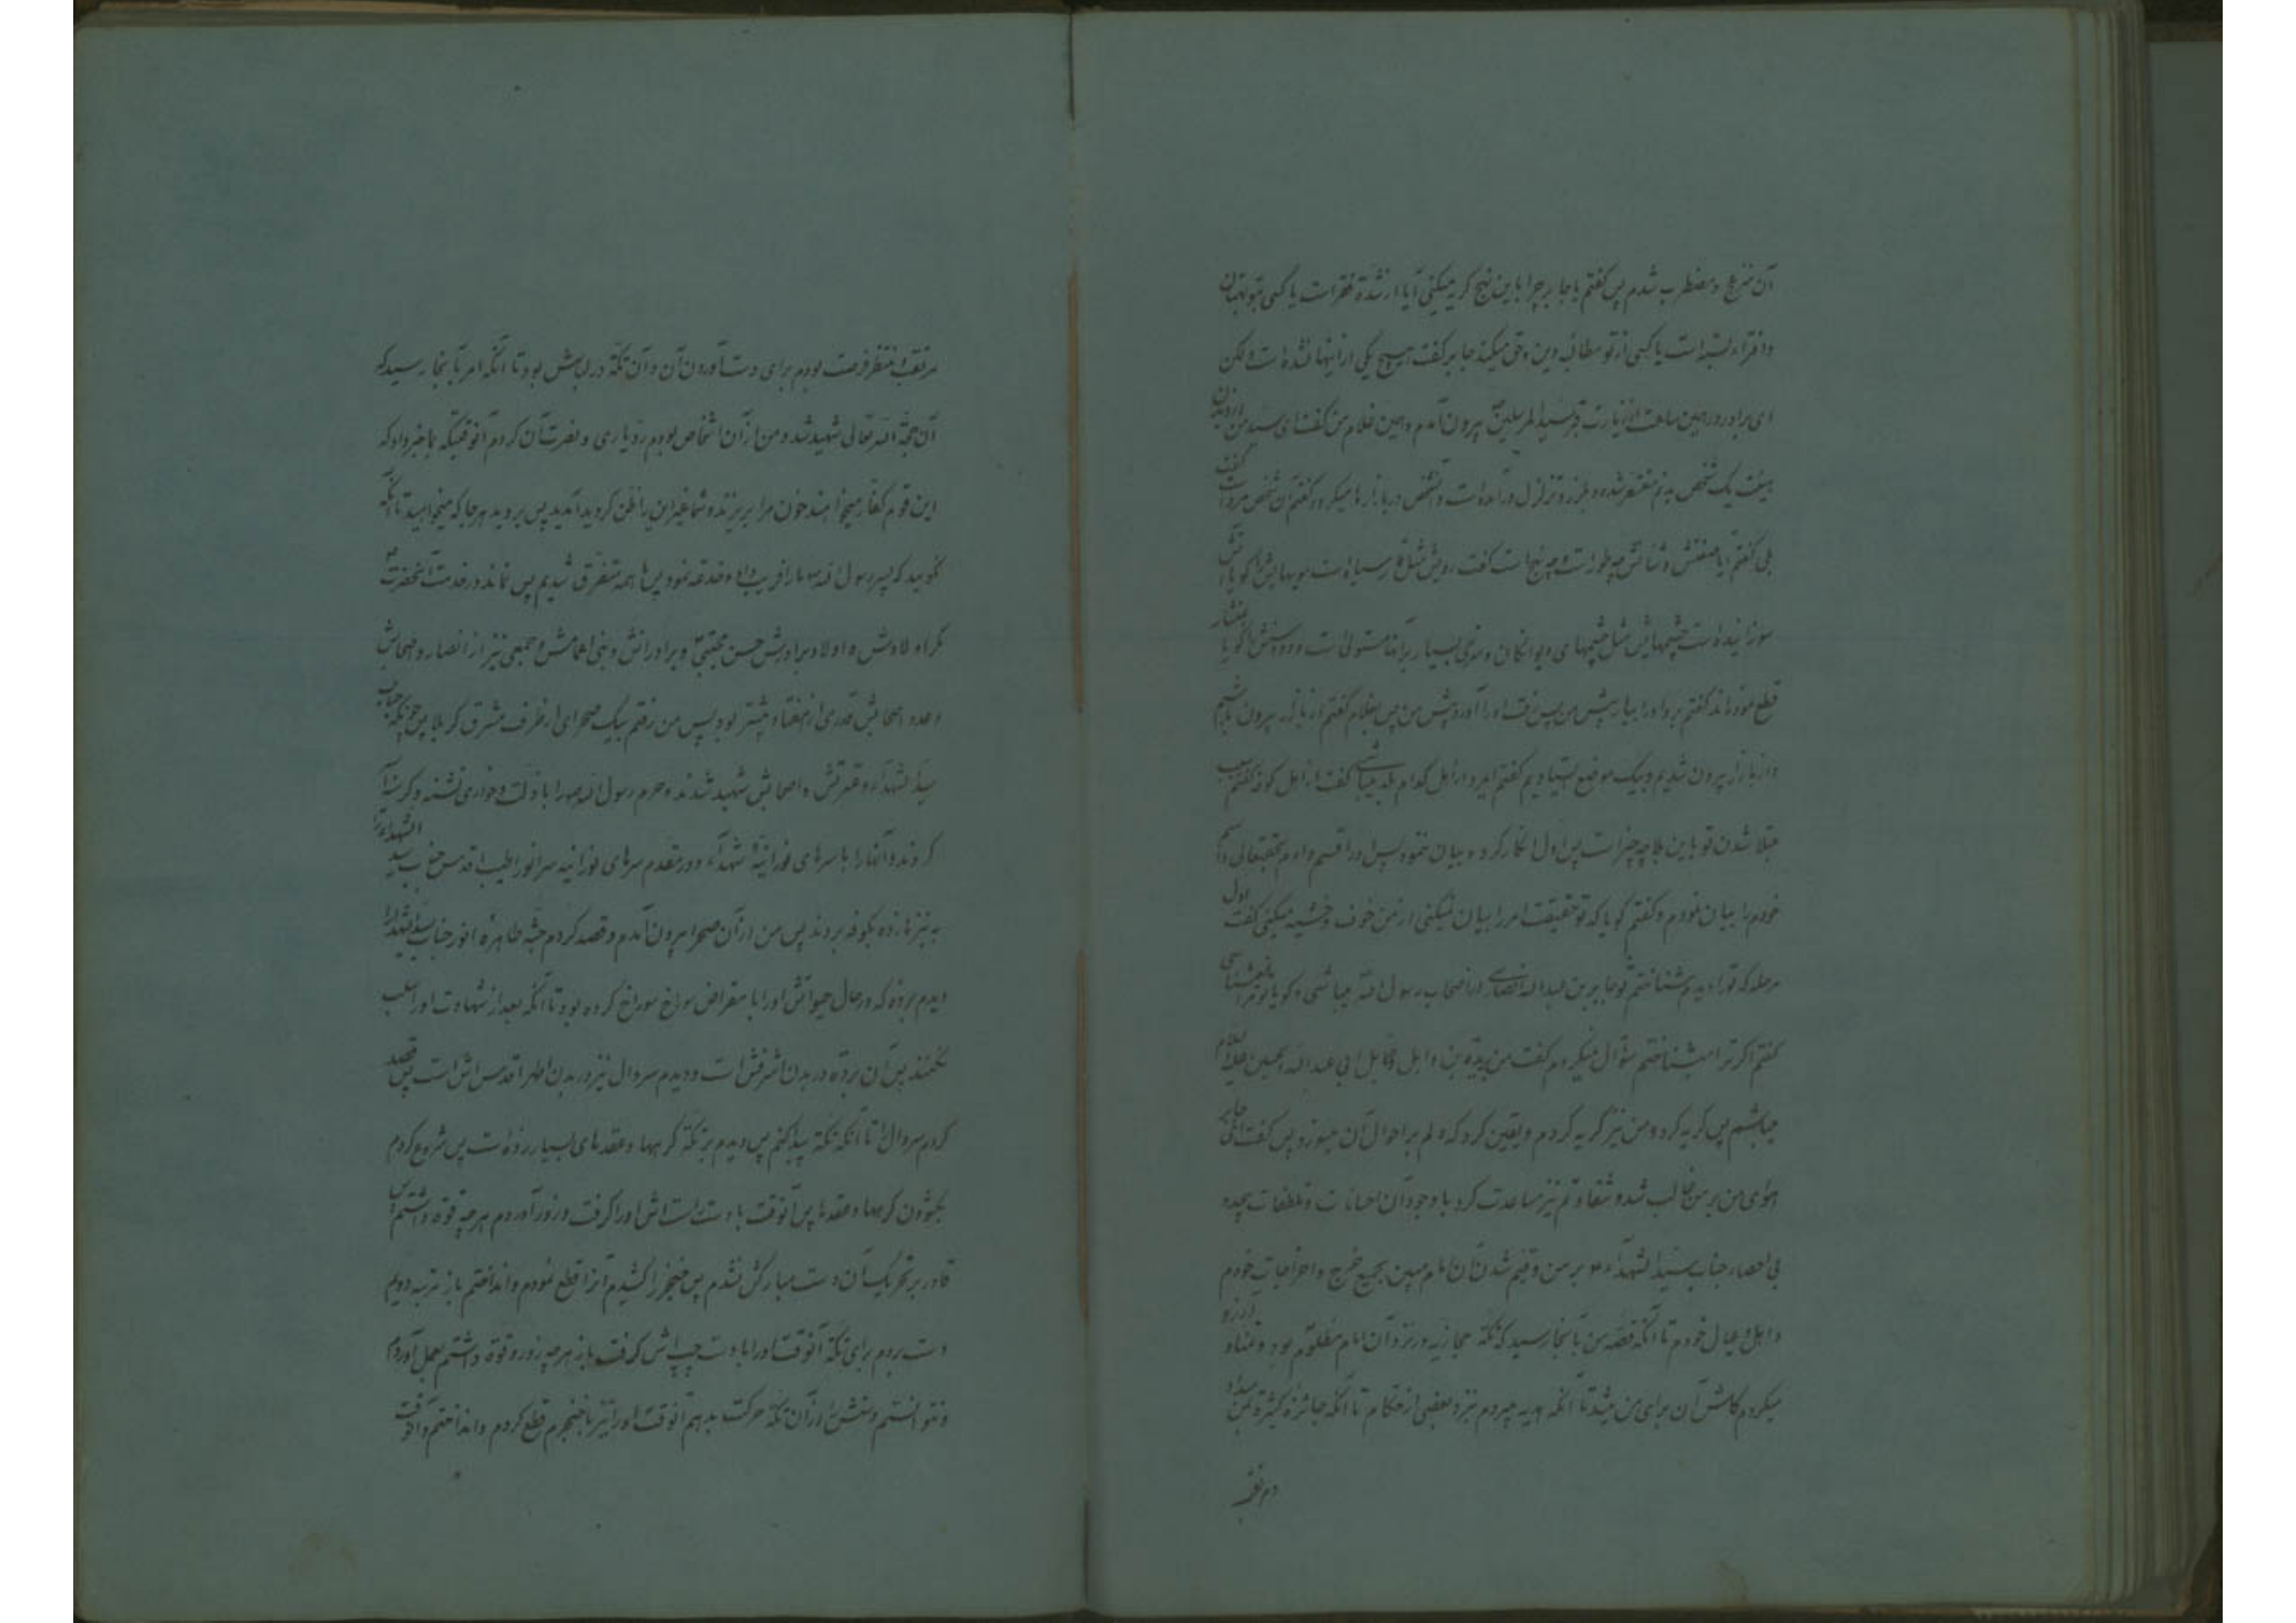 آن منزعج و مضطرب شدم پس گفتم یا جابر چرا باین نهج گریه میکنی آیا از شدة فقر است یا کسی بتو بهتان
و افتراء بسته است یا کسی از تو مطالبه دین و حق میکند جابر گفت هیچ یکی از اینها نشده است ولکن
ای برادر در همین ساعت از زیارت قبر سید المرسلین ص بیرون آمدم و همین غلام من گفت ای سید من از دیدن
هیئت یک شخص بدنم مقشعر شده و بلرزه و تزلزل در آمده است و آنشخص در بازارها میگردد گفتم آن شخص مرد است گفت
بلی گفتم آیا صفتش و شأنش چه طور است و چه نهج است گفت رویش مثل قار سیاه است مویهایش را گویا آتش
سوزانیده است چشمهایش مثل چشمهای دیوانگان و بسیار بر آنها مستولی است و دو دستش را گویا بمنشار
قطع نموده‌اند گفتم برو او را بیار پیش من پس رفت او را آورد پیش من پس بغلام گفتم از بازار بیرون باشیم
و از بازار بیرون شدیم و بیک موضع ایستادیم گفتم ایمرد از اهل کدام بلد میباشی گفت از اهل کوفه گفتم سبب
مبتلا شدن تو باین بلا چه چیز است پس اول انکار کرد و بیان ننمود پس او را قسم دادم بحقتعالی و اسم
خودم را بیان نمودم و گفتم گویا که تو حقیقت امر را بیان نمیکنی از من خوف و خشیه میکنی گفت اول
مرحله که تو را دیدم شناختم تو جابر بن عبدالله انصاری از اصحاب رسول الله میباشی و گویا تو مرا نمیشناسی
گفتم اگر ترا میشناختم سؤال نمیکردم گفت من بریدة بن وابل جمّال ابی عبدالله الحسین علیه السلام
میباشم پس گریه کرد و من نیز گریه کردم و یقین کرد که دلم بر احوال آن میسوزد پس گفت ای جابر
هوای من بر من غالب شد و شقاوتم نیز مساعدت کرد با وجود آن احسانات و تلطفات بیحد
بی احصاء جناب سید الشهداء ع بر من و قیم شدن آن امام مبین بجمیع خرج و اخراجات خودم
و اهل و عیال خودم تا آنکه قصه من بآنجا رسید که تکّه حجازیه در نزد آن امام مظلوم بود و تمنا و آرزو
میکردم کاش آن برای من میشد تا آنکه هدیه میبردم نزد بعضی از حکام تا آنکه جائزه کثیرة بمن میداد
مرتقب و منتظر فرصت بودم برای دست آوردن آن و آن تکّه در لباسش بود تا آنکه امر بآنجا رسید که
آن حجة الله تعالی شهید شد و من از آن اشخاص بودم رد یاری و نصرت آن کردم آنوقتیکه بما خبر داد که
این قوم کفار میخواهند خون مرا بریزند و شما غیر این را ظن کردید آمدید پس بروید هر جا که میخواهید تا آنکه
نگویید که پسر رسول الله ص ما را فریب داد و خدعه نمود پس ما همه متفرق شدیم پس نماند در خدمت آنحضرت ع
مگر اولادش و اولاد برادرش حسن مجتبی و برادرانش و بنی اعمامش و جمعی نیز از انصار و اصحابش
و عدد اصحابش قدری از هفتاد بیشتر بود پس من رفتم بیک صحرای از طرف مشرق کربلا پس چونکه جناب
سید الشهداء و عترتش و اصحابش شهید شدند و حرم رسول الله ص را با ذلت و خواری تشنه و گرسنه
کردند و آنها را با سرهای نورانیة شهداء و در مقدم سرهای نورانیه سر انور اطیب اقدس جناب سید الشهداء را
به نیزه زده بکوفه بردند پس من از آن صحرا بیرون آمدم و قصد کردم جثه طاهره انور جناب سید الشهداء را
دیدم برده که در حال حیواتش او را با مقراض سوراخ سوراخ کرده بود تا آنکه بعد از شهادت او را سلب
نکنند پس آن برده در بدن اشرفش است و دیدم سروال نیز در بدن اطهر اقدس اش است پس قصد
کردم سروال را تا آنکه تکّه پیدا کنم پس دیدم بر تکّه گرهها و عقدهای بسیار زده است پس شروع کردم
بگشودن گرهها و عقدها پس آنوقت با دست راست اش او را گرفت و زور آوردم هر چه قوة داشتم پس
قادر بر تحریک آن دست مبارکش نشدم پس خنجر را کشیدم آنرا قطع نمودم و انداختم باز مرتبه دویم
دست بردم برای تکّه آنوقت او را با دست چپ اش گرفت باز هر چه زور و قوة داشتم بعمل آوردم
و نتوانستم دستش را از آن تکّه حرکت بدهم آنوقت او را نیز با خنجرم قطع کردم و انداختم و آنوقت